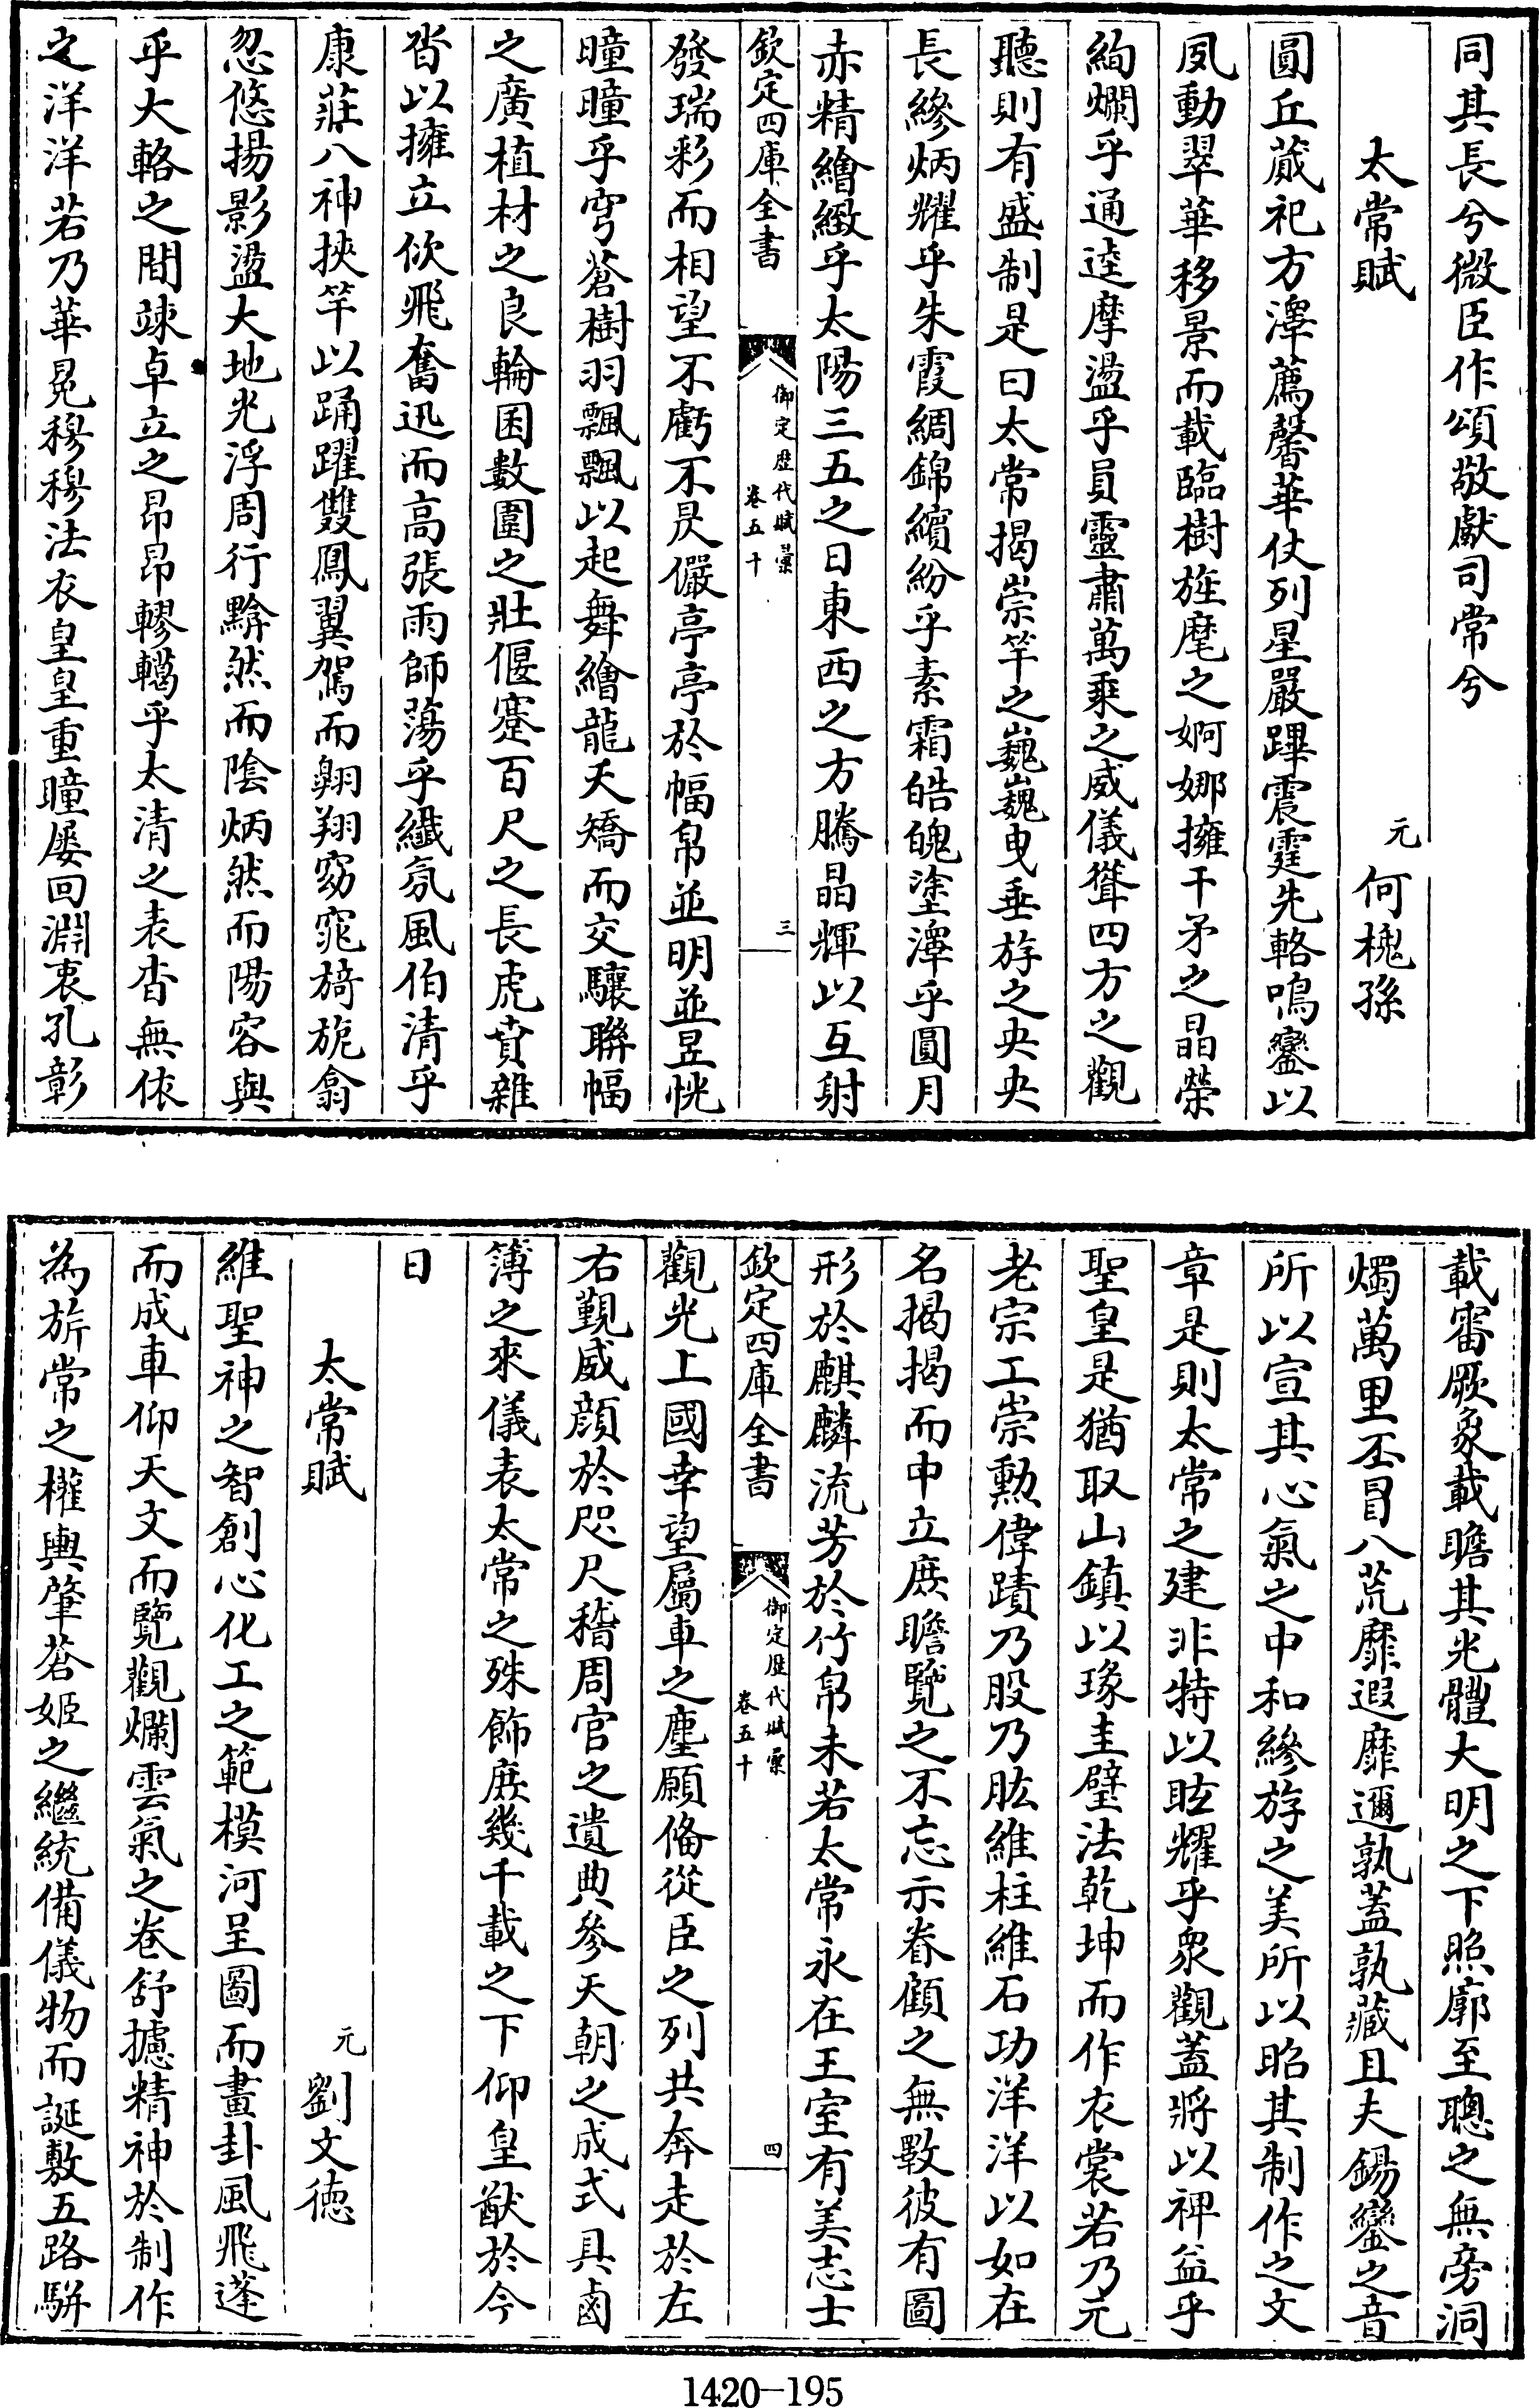 同其長兮微臣作頌敬獻司常兮
太常賦
元 何槐孫
圓丘蕆祀方澤薦馨華仗列星嚴蹕震霆先輅鳴鑾以
夙動翠華移景而載臨樹旌麾之婀娜擁干矛之晶熒
絢爛乎通逵摩盪乎員靈肅萬乘之威儀聳四方之觀
聽則有盛制是曰太常揭崇竿之巍巍曳垂斿之央央
長縿炳耀乎朱霞綢錦繽紛乎素霜皓魄塗澤乎圓月
赤精繪緻乎太陽三五之日東西之方騰晶輝以互射
欽定四庫全書
御定歷代賦彙
卷五十
三
發瑞彩而相望不虧不昃儼亭亭於幅帛並明並昱恍
曈曈乎穹蒼樹羽飄飄以起舞繪龍夭矯而交驤聯幅
之廣植材之良輪囷數圍之壯偃蹇百尺之長虎賁雜
沓以擁立佽飛奮迅而高張雨師蕩乎纖氛風伯清乎
康莊八神挾竿以踊躍雙鳳翼駕而翱翔窈窕旖旎翕
忽悠揚影盪大地光浮周行黭然而陰炳然而陽容與
乎大輅之間竦卓立之昂昂轇轕乎太清之表杳無依
之洋洋若乃華冕穆穆法衣皇皇重瞳屢回淵衷孔彰
載審厥象載瞻其光體大明之下照廓至聰之無旁洞
燭萬里丕冒八荒靡遐靡邇孰蓋孰藏且夫鍚鑾之音
所以宣其心氣之中和縿斿之美所以昭其制作之文
章是則太常之建非特以眩耀乎衆觀蓋將以裨益乎
聖皇是猶取山鎮以瑑圭璧法乾坤而作衣裳若乃元
老宗工崇勲偉蹟乃股乃肱維柱維石功洋洋以如在
名揭揭而中立庶瞻覽之不忘示眷顧之無斁彼有圖
形於麒麟流芳於竹帛未若太常永在王室有美志士
欽定四庫全書
御定歷代賦彙
卷五十
四
觀光上國幸望屬車之塵願備從臣之列共奔走於左
右覲威顔於咫尺稽周官之遺典參天朝之成式具鹵
簿之來儀表太常之殊飾庶幾千載之下仰皇猷於今
日
太常賦
元 劉文徳
維聖神之智創心化工之範模河呈圖而畫卦風飛蓬
而成車仰天文而覽觀爛雲氣之卷舒攄精神於制作
為旂常之權輿肇蒼姬之繼統備儀物而誕敷五路駢
1420—195